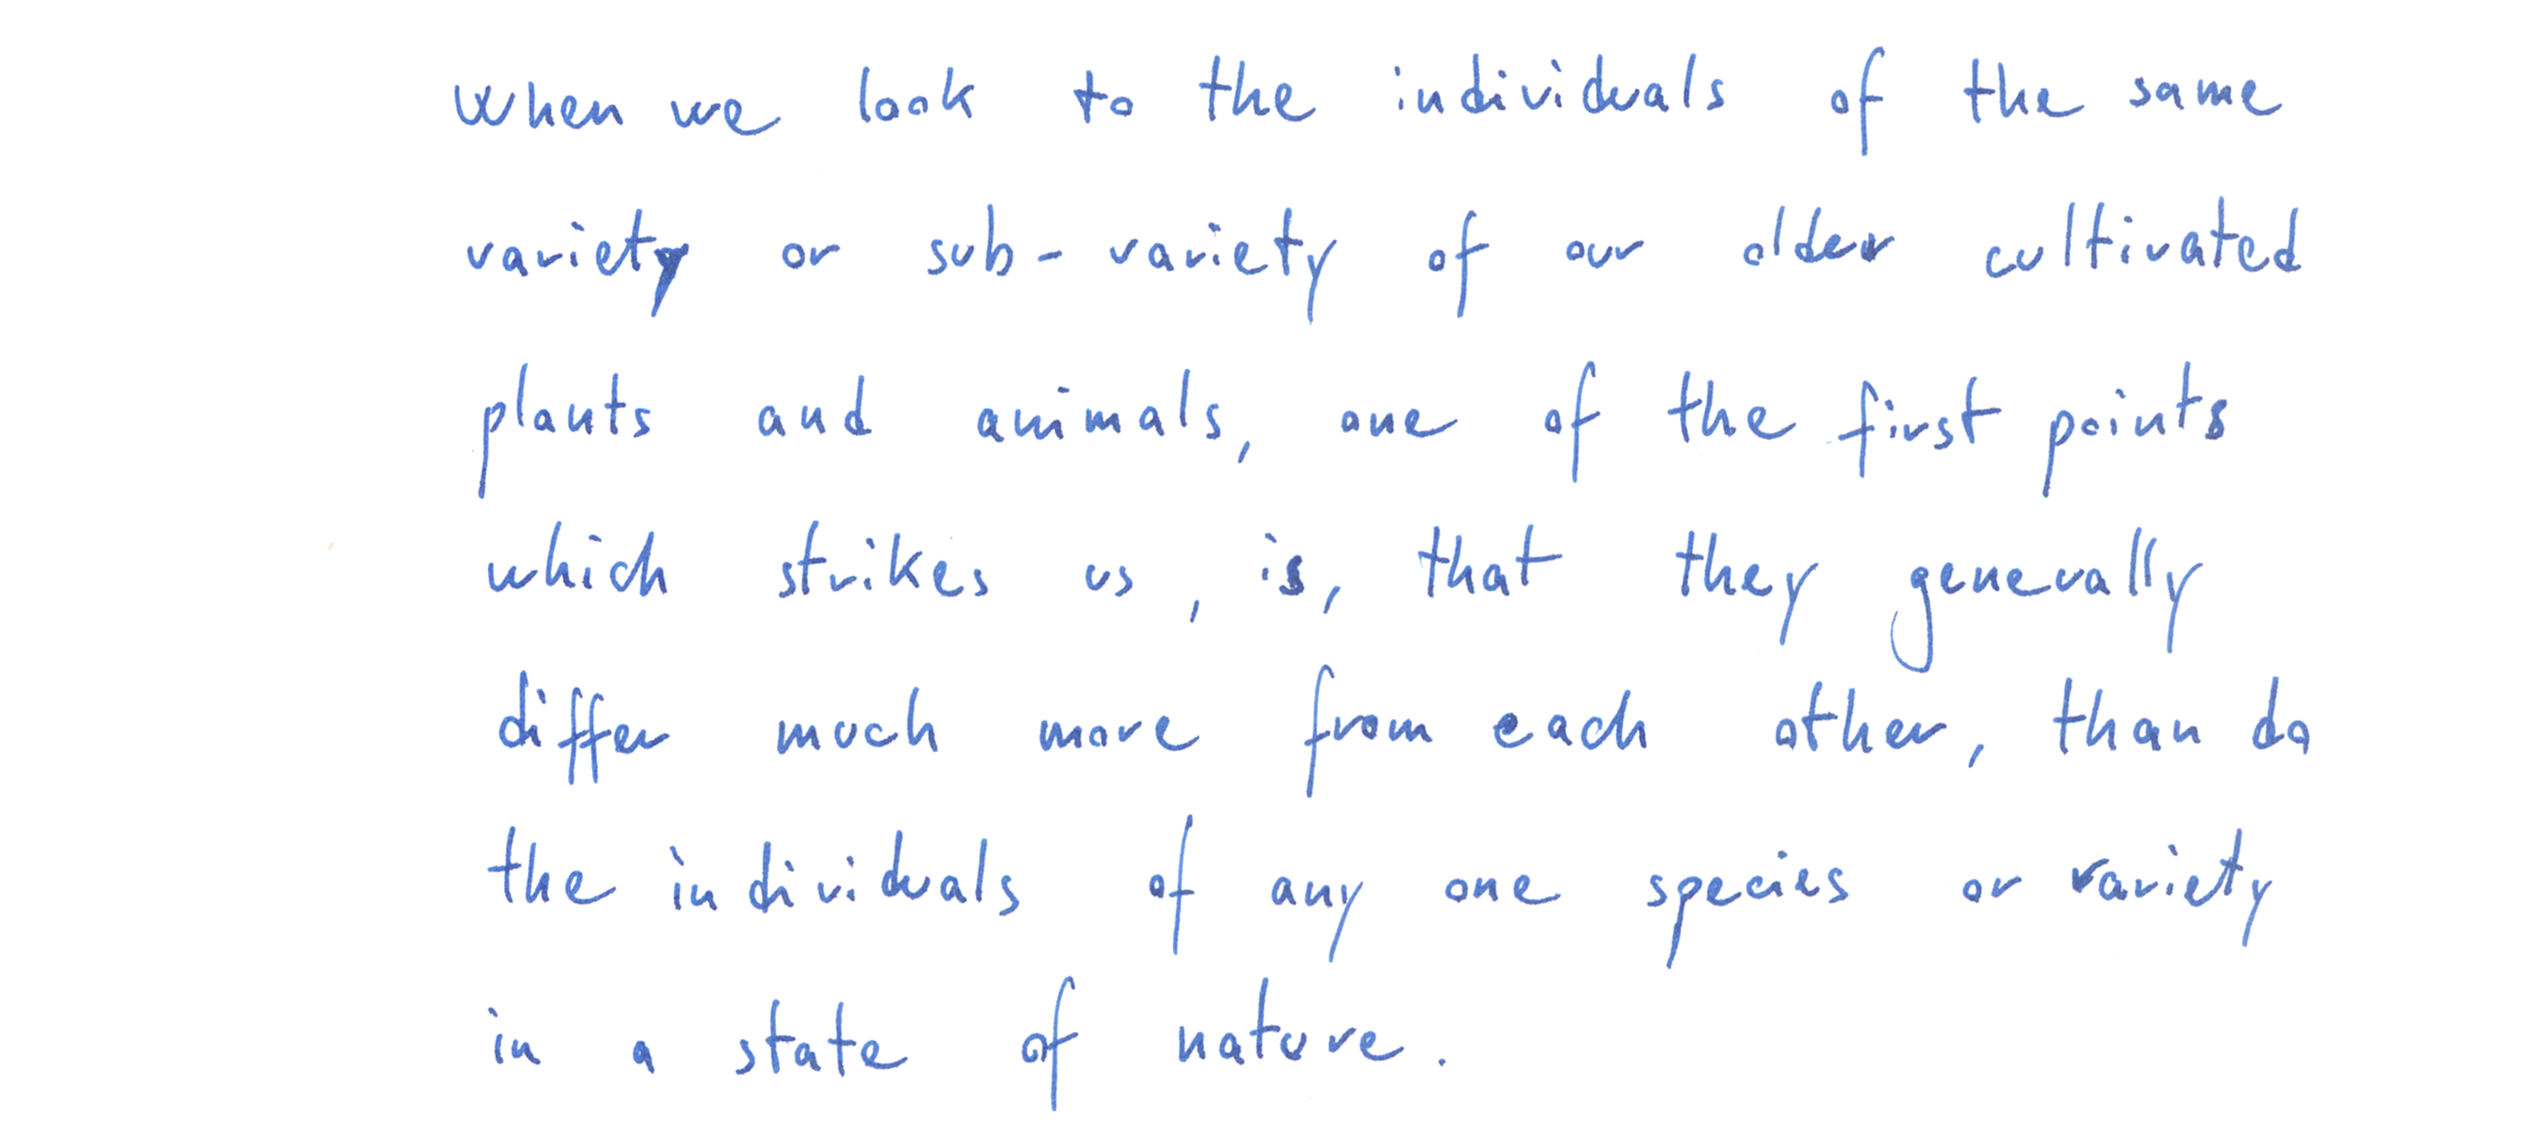 When we look to the individuals of the same
variety or sub-variety of our older cultivated
plants and animals, one of the first points
which strikes us, is, that they generally
differ much more from each other, than do
the individuals of any one species or variety
in a state of nature.